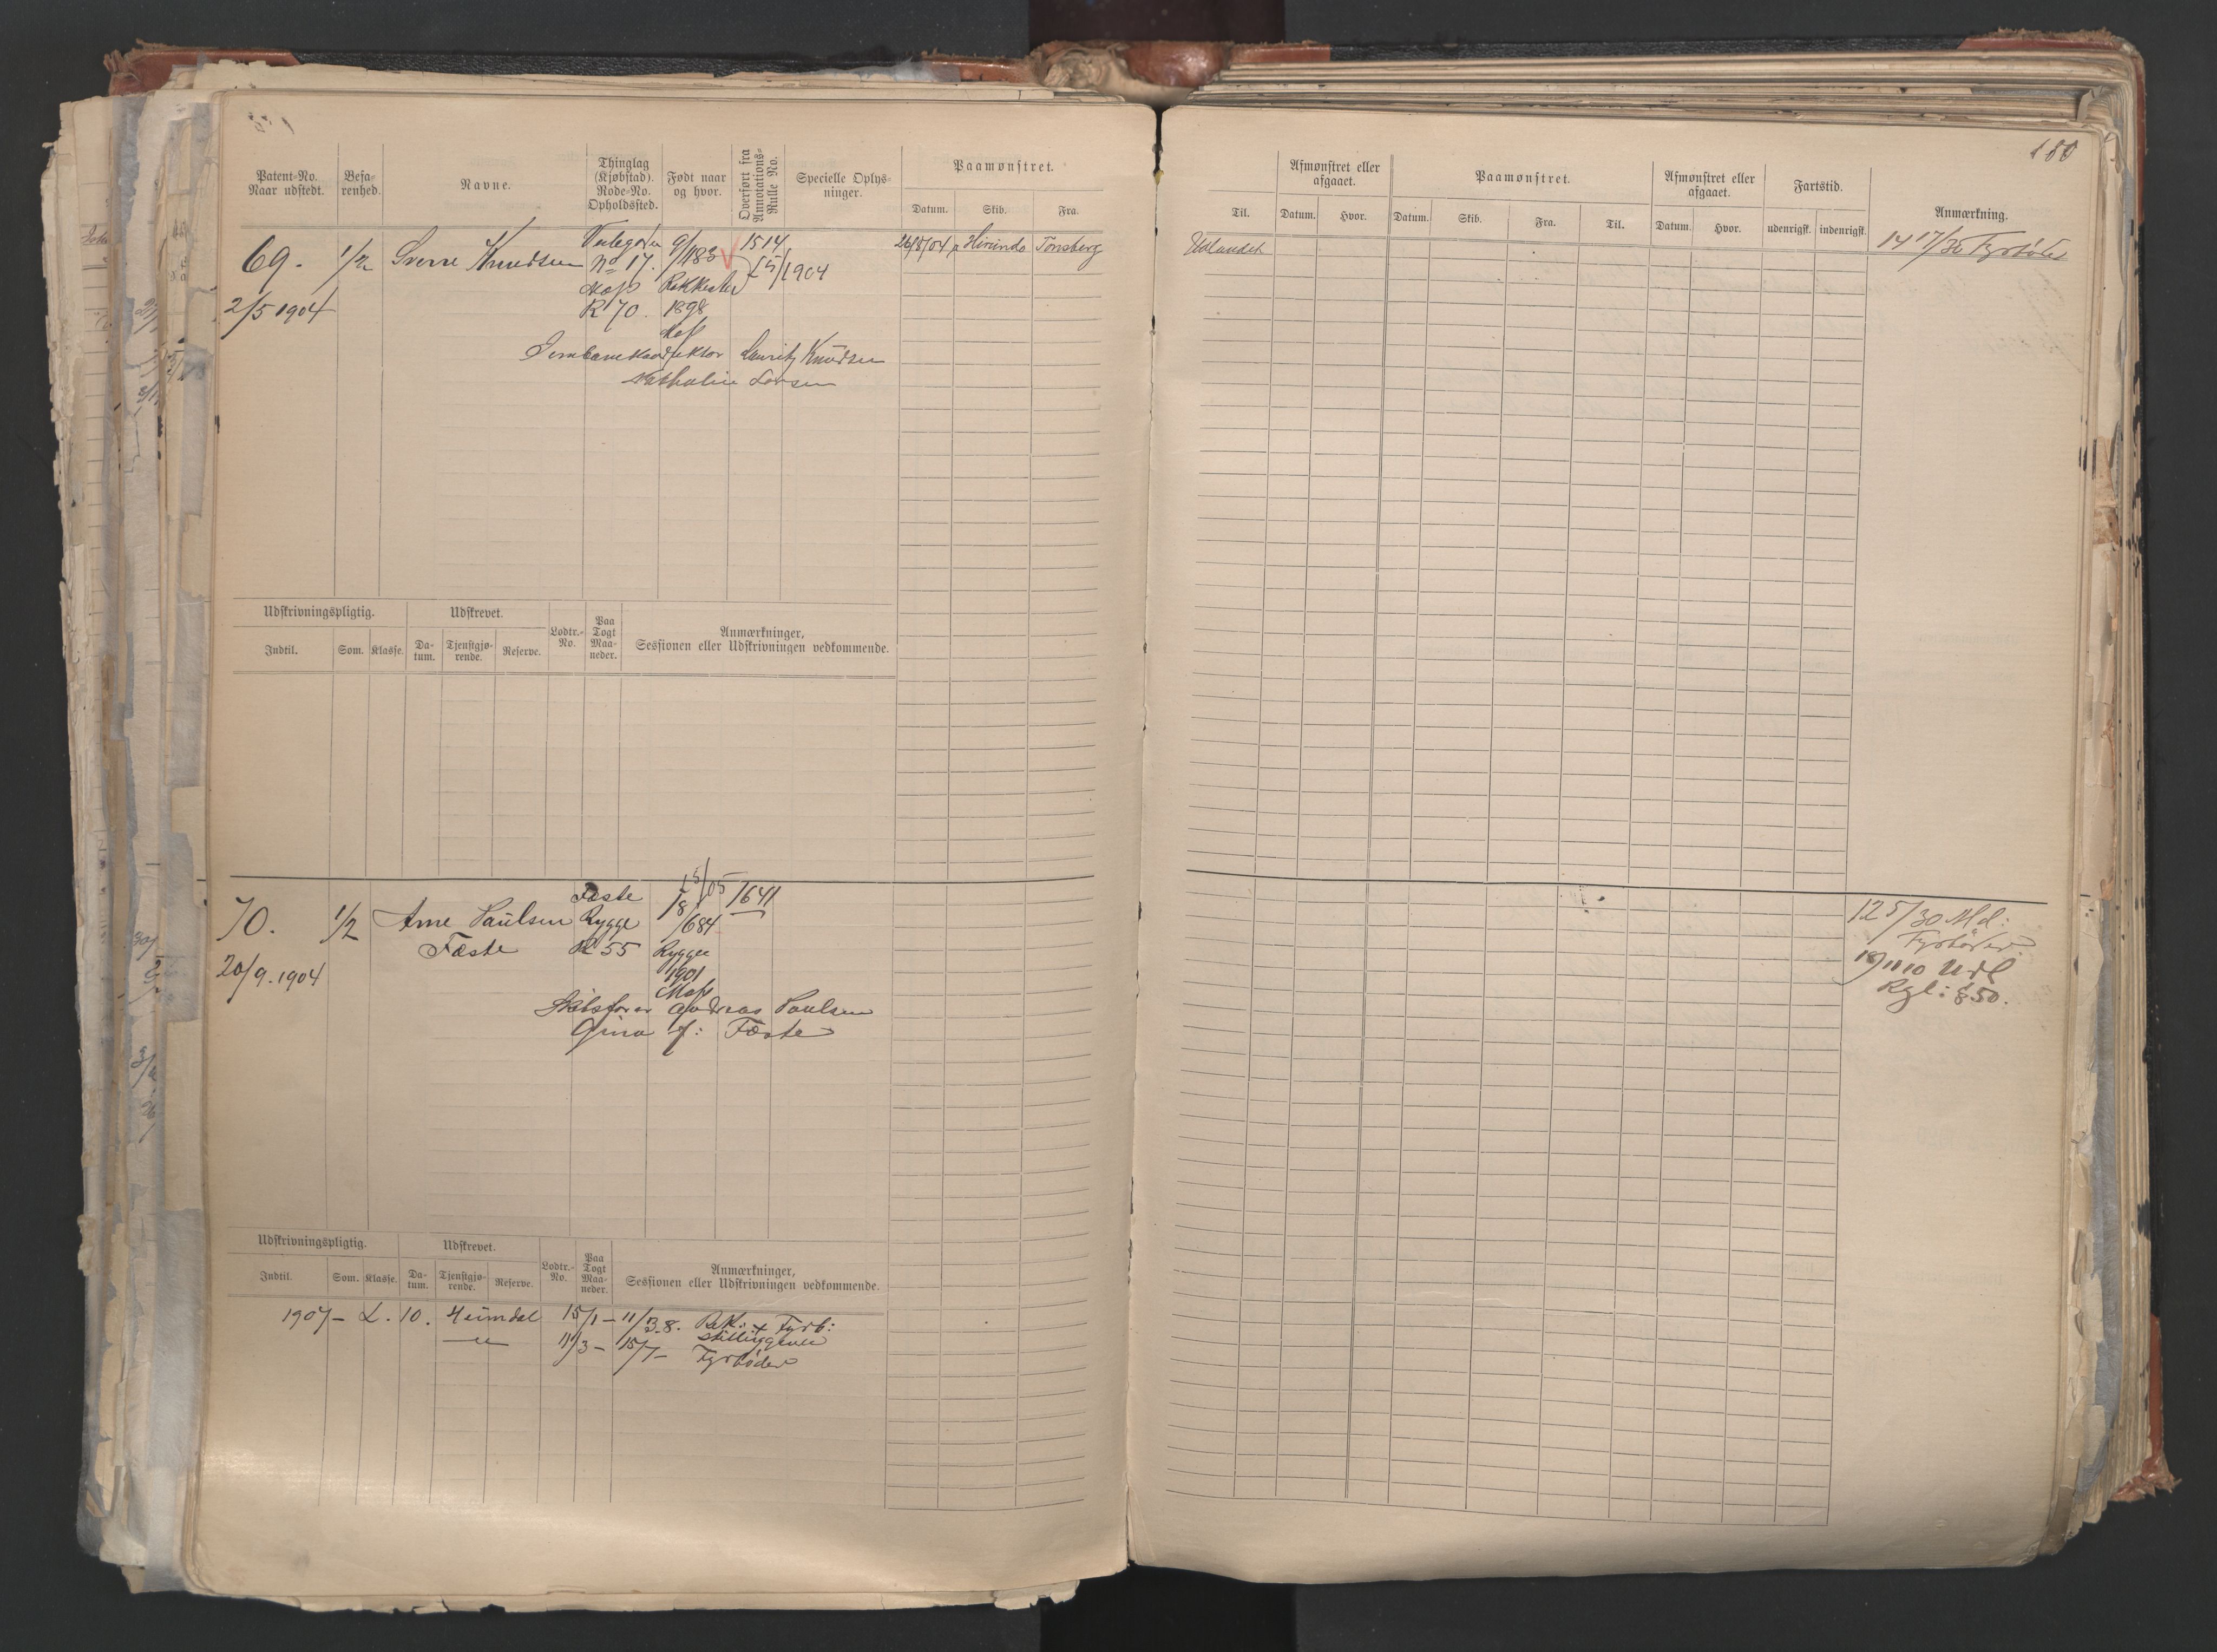 180
Patent-No. Naar udstedt.
Befarenhed.
Navne.
Thinglag (Kjøbstad). Rode-No. Opholdssted.
Født naar og hvor.
Overført fra Annotations-Rulle No.
Specielle Oplysninger.
Paamønstret.
Datum. Skib. Fra.
Til.
Afmønstret eller afgaaet.
Datum. Hvor.
Paamønstret.
Datum. Skib. Fra. Til.
Afmønstret eller afgaaet.
Datum. Hvor.
Fartstid.
udenrigsk. indenrigsk.
Anmærkning.
69. 1/2 Sverre Knudsen 9/1183 1514 Hirundo Tønsberg Udlandet 14 17/30 Fyrbøder
No 17. 5/1904
2/5 1904 R 70. 1898
Moss
Lauritz Knudsen
Larsen
Udskrivningspligtig.
Indtil. Som. Klasse.
Udskrevet.
Datum. Tjenstgjørende. Reserve.
Lodtr.-No.
Paa Togt Maaneder.
Anmærkninger, Sessionen eller Udskrivningen vedkommende.
70. 1/2 Arne Paulsen Rygge 1/8 1641 12 5/30 Md:
Fæste R 55 684 Fyrbøder
20/9. 1904 Rygge 19/11 10 Udl
1901 Rgl: § 50.
Moss
Skibsfører Andreas Paulsen
Gina f: Fæste
Udskrivningspligtig.
Indtil. Som. Klasse.
Udskrevet.
Datum. Tjenstgjørende. Reserve.
Lodtr.-No.
Paa Togt Maaneder.
Anmærkninger, Sessionen eller Udskrivningen vedkommende.
1907 - L. 10. Heimdal 15/1 - 11/3 8. Rek: + Fyrb:
11/3 - 15/7 - Fyrbøder